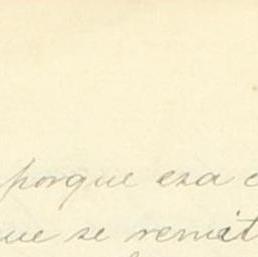 porque esa
ue se remit